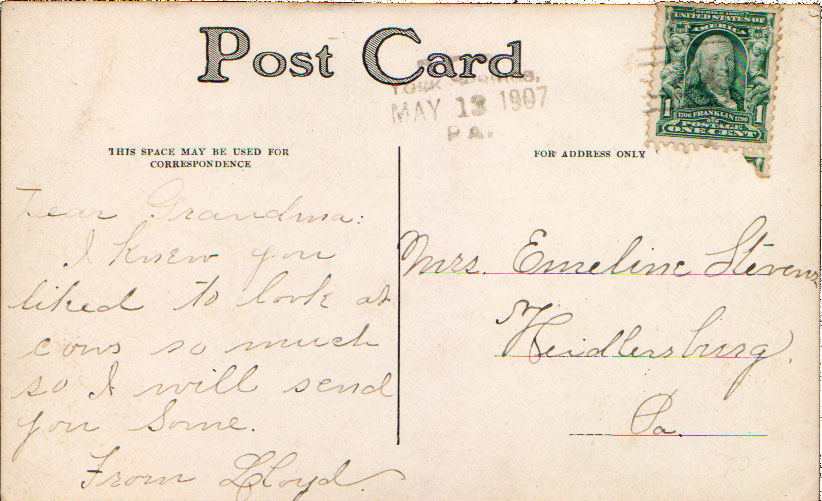 Post Card
YORK SPRINGS,
MAY 13 1907
PA.
UNITED STATES OF
AMERICA
1 1
1706 FRANKLIN 1790
POSTAGE
ONE CENT
THIS SPACE MAY BE USED FOR
CORRESPONDENCE
FOR ADDRESS ONLY
Dear Grandma:
I knew you
liked to look at
cows so much
so I will send
you some.
From Lloyd.
Mrs. Emeline Stevens
Heidlersburg.
Pa.